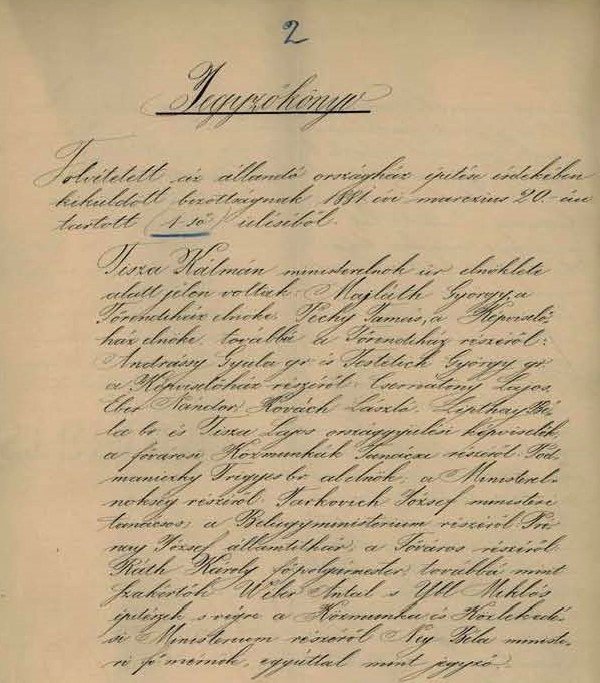 2
Jegyzőkönyv
Fölvétetett az állandó országház épitése érdekében
kiküldött bizottságnak 1881 évi marczius 20.-án
tartott (1-ső) üléséből.
Tisza Kálmán ministerelnök úr elnöklete
alatt jelen voltak: Majláth György, a
Főrendiház elnöke, Péchy Tamás, a Képviselő-
ház elnöke, továbbá a Főrendiház részéről:
Andrássy Gyula gr. és Festetich György gr.
a Képviselőház részéről: Csernátony Lajos,
Éber Nándor, Kovách László, Lipthay Bé-
la br. és Tisza Lajos országgyülési képviselők,
a fővárosi Közmunkák Tanácsa részéről Pod-
maniczky Frigyes br. alelnök, a Ministerel-
nökség részéről: Tarkovich József ministeri
tanácsos; a Belügyministerium részéről Pró-
nay József államtitkár, a Főváros részéről
Ráth Károly főpolgármester, továbbá mint
szakértők Wéber Antal s Ybl Miklós
épitészek s végre a Közmunka és Közlekedé-
si Ministerium részéről Ney Béla ministe-
ri fő mérnök, egyúttal mint jegyző.